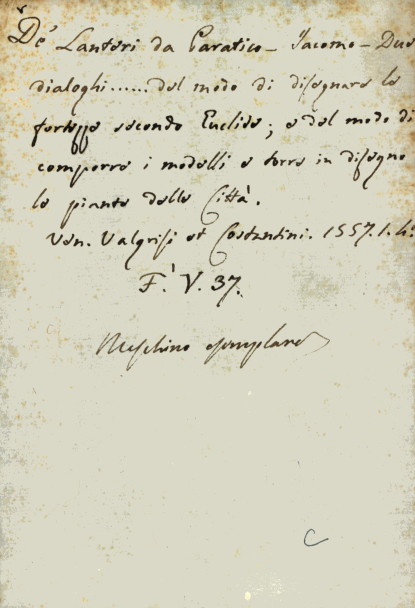 De' Lanteri da Paratico - Jacomo - Due
dialoghi...... del modo di disegnare le
fortezze secondo Euclide; e del modo di
comporre i modelli e torre in disegno
le piante delle Città.
Ven. Valgrisi et Costantini. 1557. 1. 4:
F.' V. 37.
Meschino esemplare
C